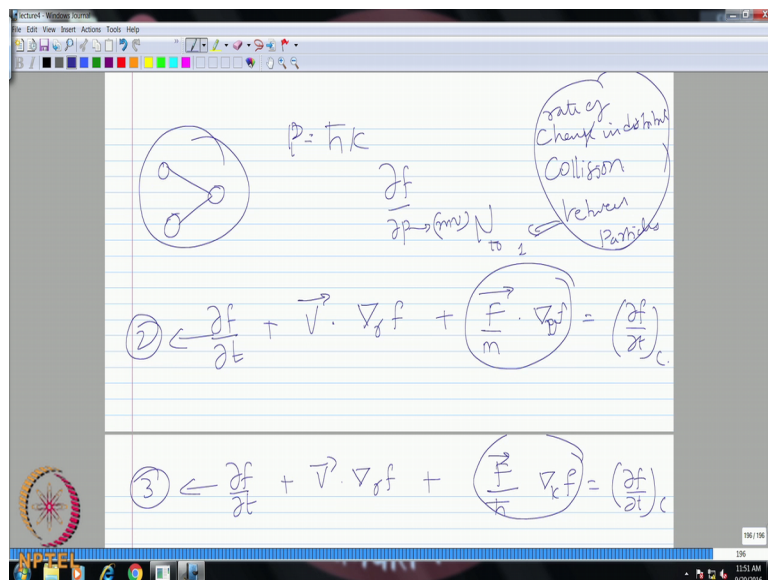 lecture4 - Windows Journal
File Edit View Insert Actions Tools Help
P = ħk
∂f
∂p → (mv) N to 1
rate of
Change in
Collisson
between
Particles
② ← ∂f/∂t + V⃗ · ∇r f + F⃗/m · ∇ f = (∂f/∂t)c
③ ← ∂f/∂t + V⃗ · ∇r f + F⃗/ħ ∇k f = (∂f/∂t)c
NPTEL
196 / 196
196
11:51 AM